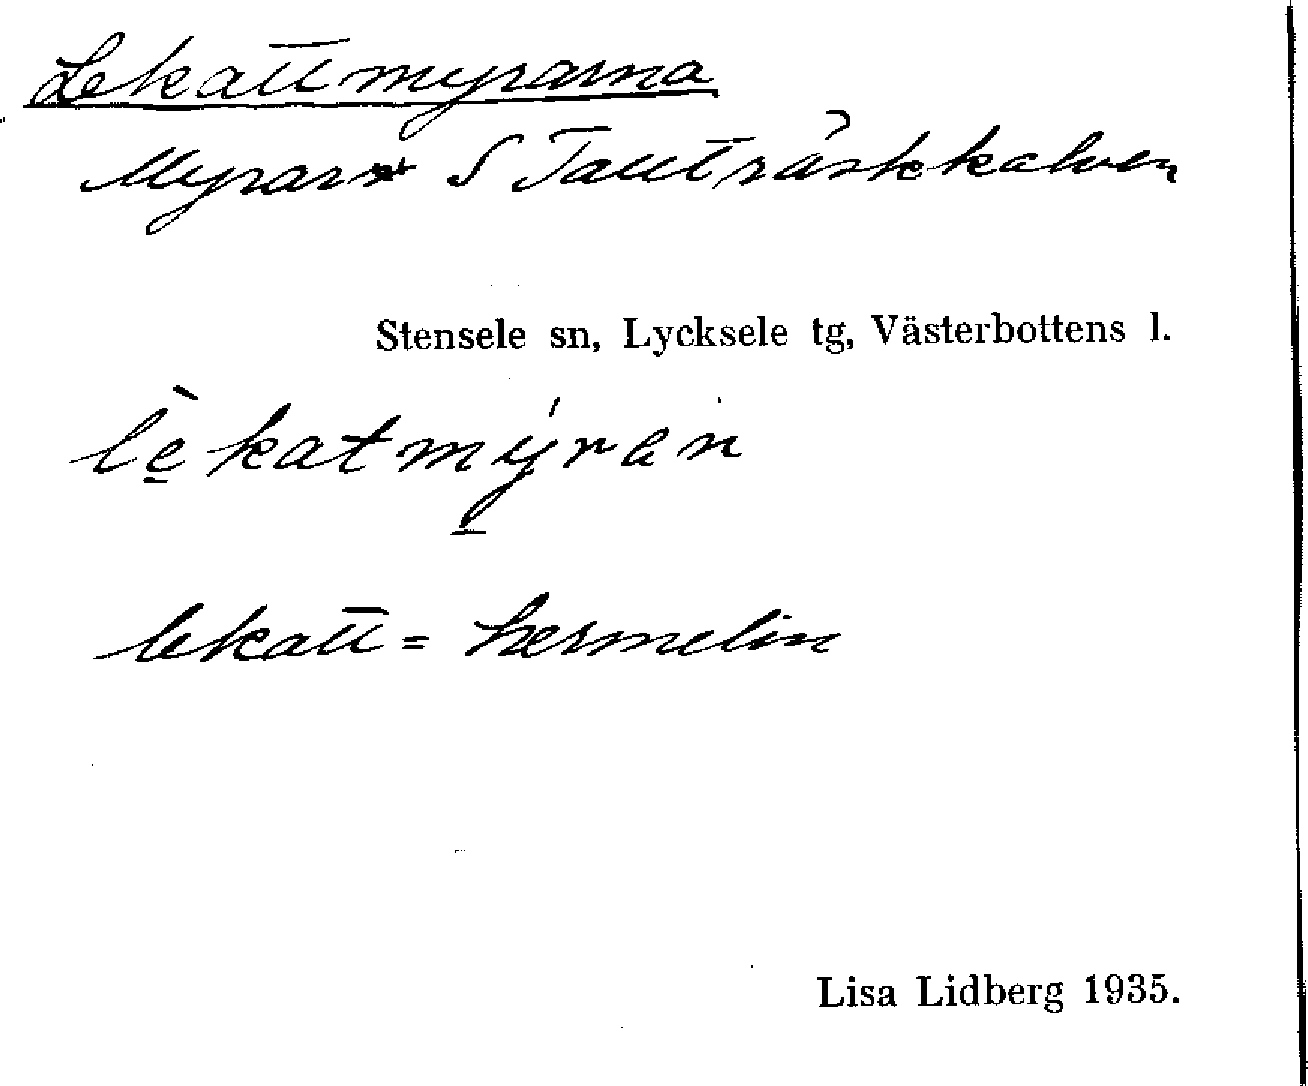 Lekattmyrarna
Myrar S Tallträskkalven
Stensele sn, Lycksele tg, Västerbottens l.
lè̱katmý̱ran
lekatt = hermelin
Lisa Lidberg 1935.